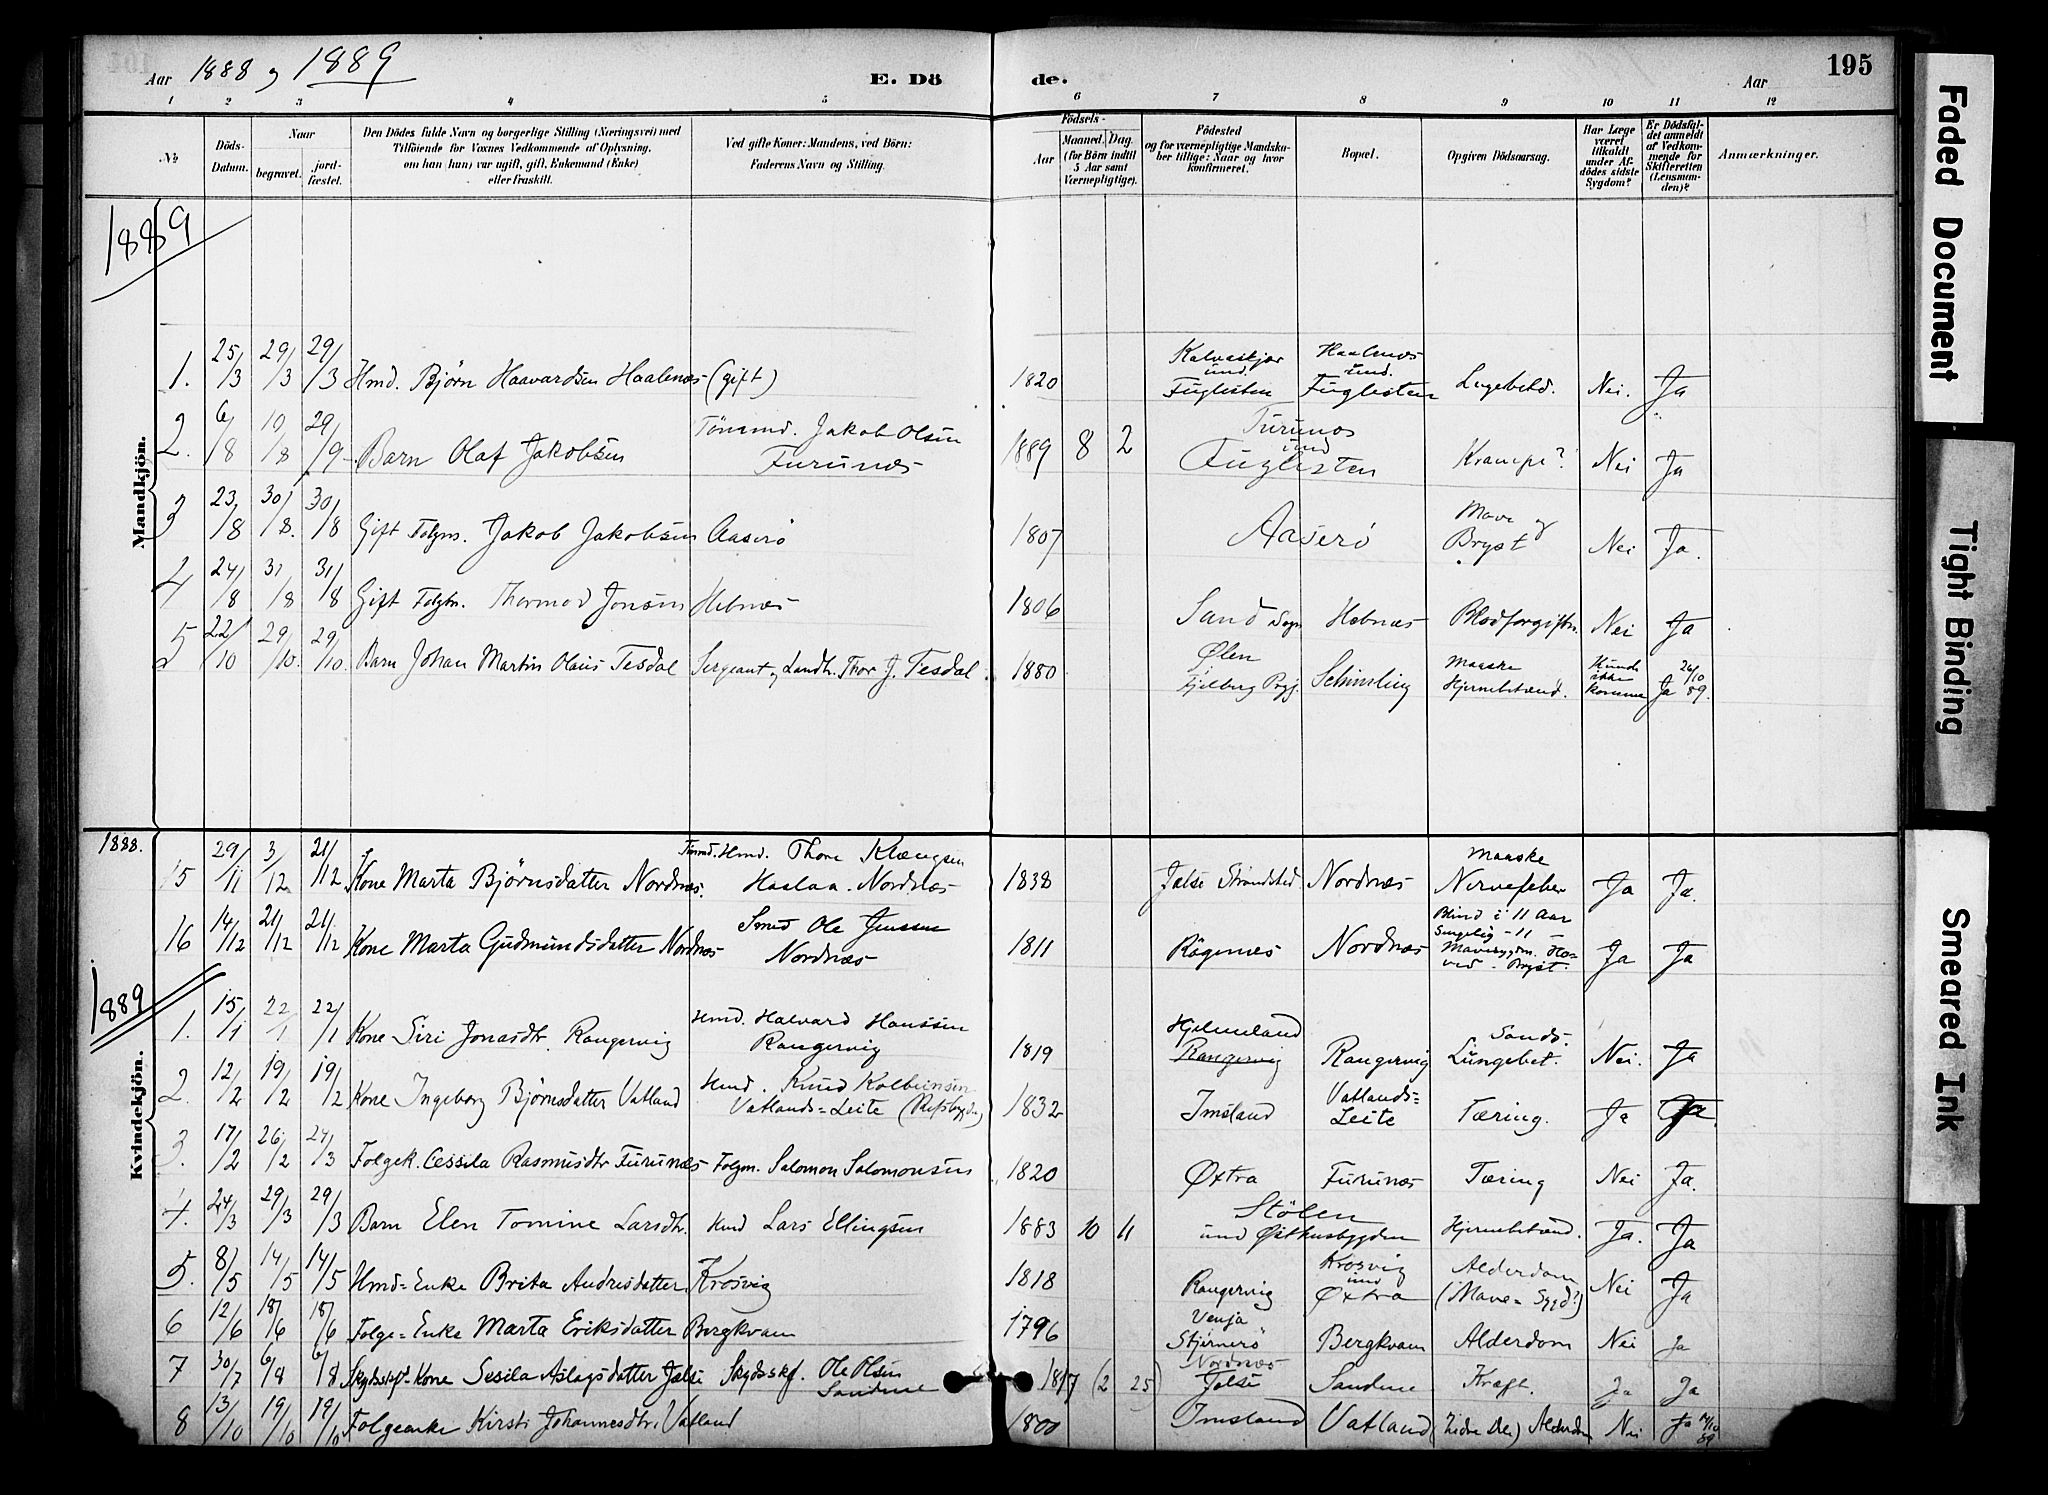 Aar 1888 og 1889 E. Dö de. Aar 195
1 2 3 4 5 6 7 8 9 10 11 12
No
Döds-Datum.
Naar
begravet.
jord-fæstet.
Den Dödes fulde Navn og borgerlige Stilling (Næringsvei) med
Tilföiende for Voxnes Vedkommende af Oplysning,
om han (hun) var ugift, gift, Enkemand (Enke)
eller fraskilt.
Ved gifte Koner: Mandens, ved Börn:
Faderens Navn og Stilling.
Födsels-
Aar
Maaned. Dag.
(for Börn indtil
5 Aar samt
Værnepligtige).
Födested
og for værnepligtige Mandska-
ber tillige: Naar og hvor
konfirmeret.
Bopæl.
Opgiven Dödsaarsag.
Har Læge
været
tilkaldt
under Af-
dödes sidste
Sygdom?
Er Dödsfal-
det anmeldt
af Vedkom-
mende for
Skifteretten
(Lensman-
den)?
Anmærkninger.
1889
Mandkjön.
1. 25/3 29/3 29/3 Hmd. Bjørn Haavardsen Haalenæs (gift) 1820 Kalvaskjær und. Fuglesten Haalenæs und. Fuglesten Lugebetd. Nei. Ja
2. 6/8 10/8 29/9 Barn Olaf Jakobsen Tømmd. Jakob Olsen Furunæs 1889 8 2 Furunæs und Fuglesten Krampe? Nei Ja
3 23/8 30/8. 30/8 Gift Folgm. Jakob Jakobsen Aaserø 1807 Aaserø Mave og Bryst Nei Ja.
4 24/8 31/8 31/8 Gift Folgm. Thormod Jonsen Hebnæs 1806 Sand Sogn Hebnæs Blodforgiftn. Nei Ja
5 22/10 29/10. 29/10. Barn Johan Martin Olaus Tesdal Sergeant og Landh. Thor J. Tesdal. 1880 Ølen Fjelberg Prgj. Maaske Hjernebetænd. Kunde ikke komme Ja 26/10 89.
1888.
15 29/11 3/12 21/12 Kone Marta Bjørnsdatter Nordnæs. Hmd. Thore Klængsen Haalaa. Nordnæs 1838 Jælse Strandsted Nordnæs Maaske Nervefeber Ja Ja.
16 14/12 21/12 21/12 Kone Marta Gudmundsdatter Nordnæs Smed Ole Jenssen Nordnæs 1811 Rögenæs Nordnæs Blind i 11 Aar Sengelig - 11 - Mavesygdm. Ho-ved. Bryst. Ja Ja
1889
Kvindekjön.
1. 15/1 22/1 22/1 Kone Siri Jonasdtr. Rangervig Hmd. Halvard Hanssen Rangervig 1819 Hjelmeland Rangervig Rangervig Sands. Lungebet. Nei. Ja
2. 12/2 19/2 19/2 Kone Ingeborg Bjørnsdatter Vatland Hmd. Knud Kolbeinsen Vatlands=Leite 1832 Imsland Vatlands=Leite Tæring. Ja Ja.
3. 17/2 26/2 24/3 Folgek. Cessila Rasmusdtr Furunæs Folgm. Salomon Salomonsen 1820 Øxtra Furunæs Tæring Nei Ja.
4. 24/3 29/3 29/3 Barn Elen Tomine Larsdtr. Hmd Lars Ellingsen 1883 10 11 Stölen und Østhusbygden Hjernebetænd. Ja. Ja
5. 8/5 14/5 14/5 Hmd=Enke Brita Andresdatter Krosvig 1818 Rangervig Krosvig und Øxtra Alderdom (Mave=Sygd?) Nei Ja
6 12/6 18/6 18/6 Folge=Enke Marta Eriksdatter Bergkvam 1796 Venja Stjernerö Bergkvam Alderdom Nei Ja
7 30/7 6/8 6/8 Skydsskf.-Kone Sesila Aslagsdatter Jælse Skydsskf. Ole Olsen Sandene 1817 (2 25) Nordnæs Jelse Sandene Kræft. Ja Ja
8 13/10 19/10 19/10 Folgeenke Kirsti Johannesdtr. Vatland 1800 Imsland Vatland (Indre Del) Alderdom Nei Ja 14/10 89
Faded Document
Tight Binding
Smeared Ink